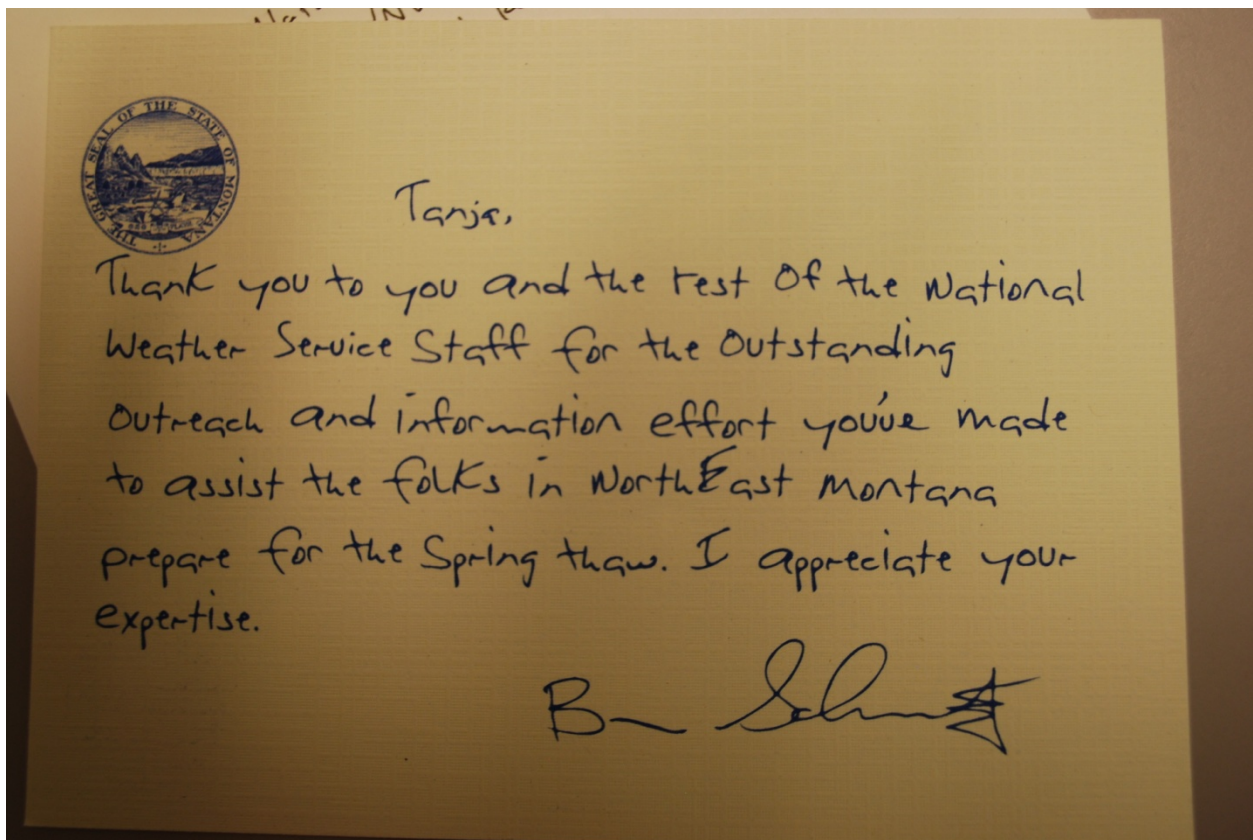 THE GREAT SEAL OF THE STATE OF MONTANA
Tanja,
Thank you to you and the rest of the National
Weather Service Staff for the Outstanding
Outreach and information effort you've made
to assist the folks in NorthEast Montana
prepare for the Spring thaw. I appreciate your
expertise.